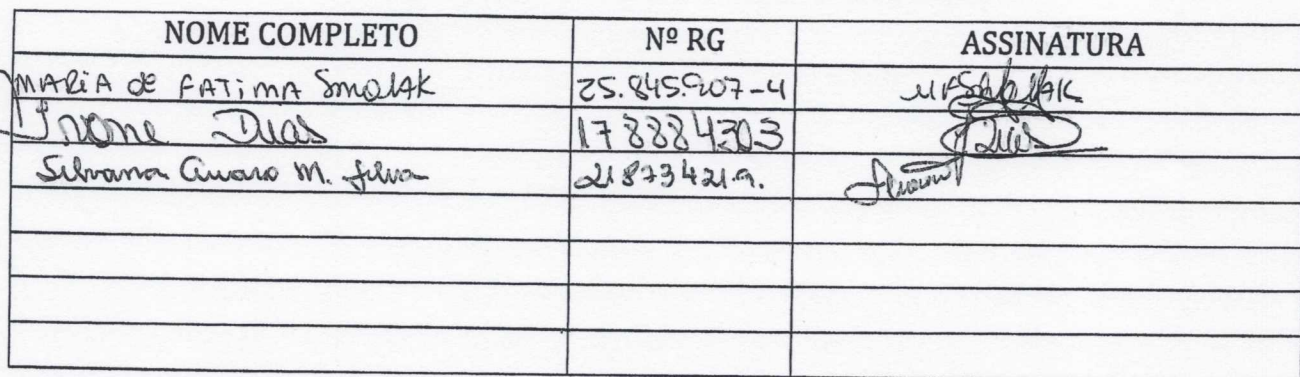 NOME COMPLETO Nº RG ASSINATURA
MARiA de FATiMA SmolAK 25.845.907-4
Ivone Dias 178884303 Dias
Silvana M. Silva 218734219.